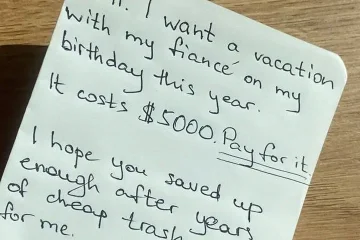 I want a vacation
with my fiancé on my
birthday this year.
It costs $5000. Pay for it.
I hope you saved up
enough after years
of cheap trash
for me.